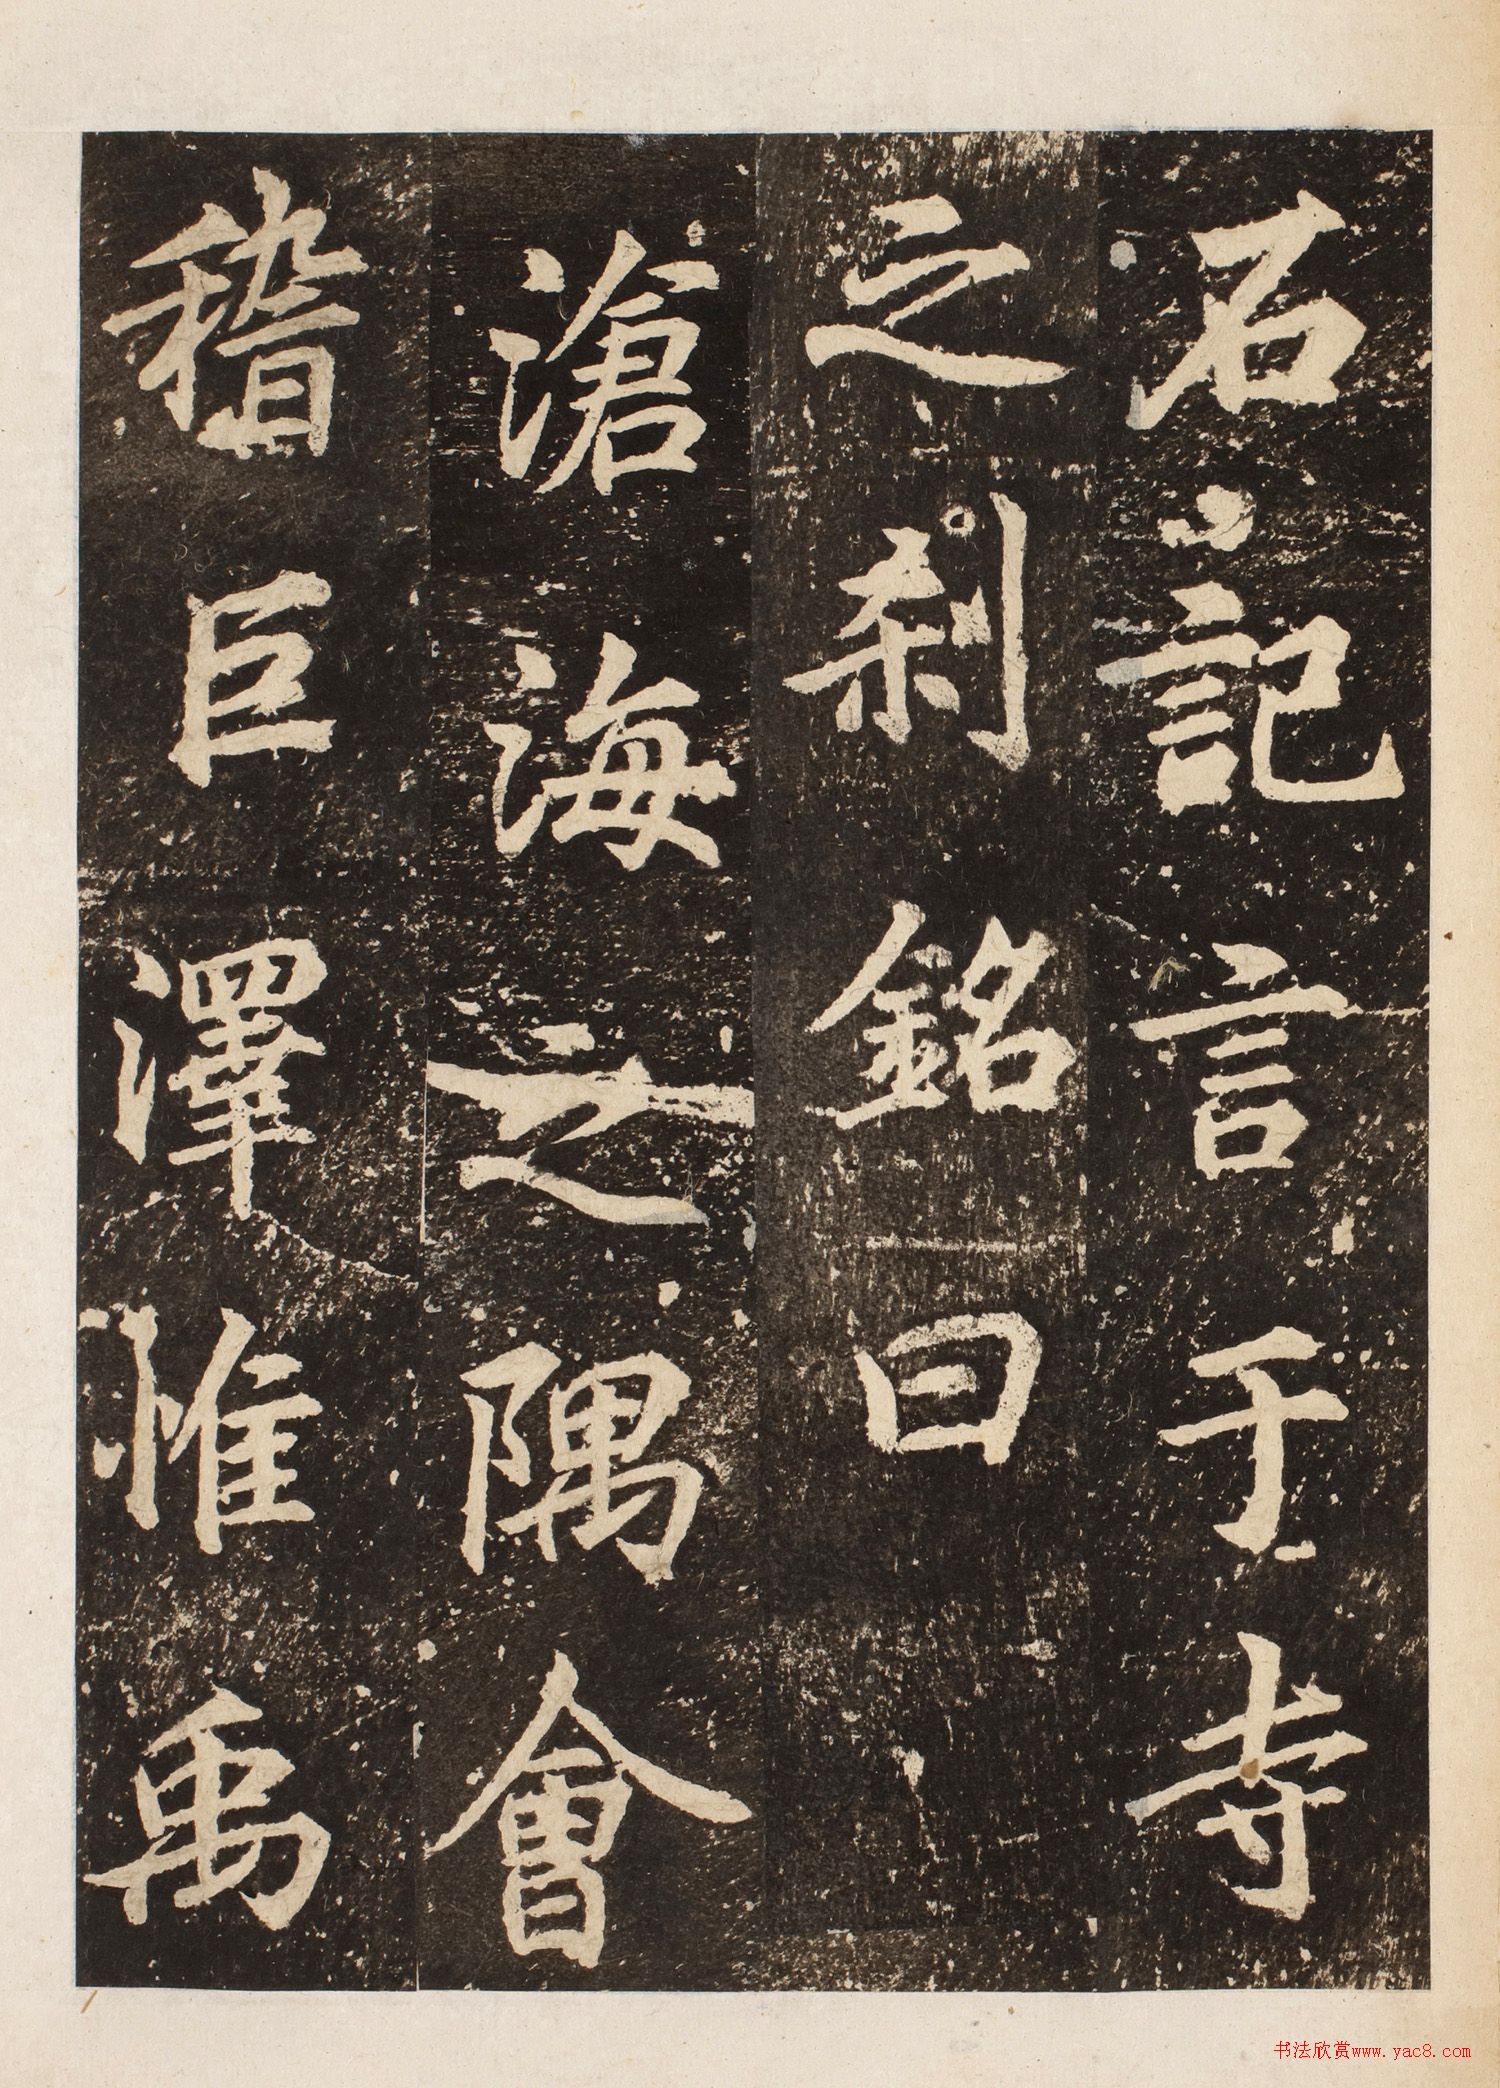 石記言于寺
之刹銘曰
滄海之隅會
稽巨澤惟禹
书法欣赏www.yac8.com